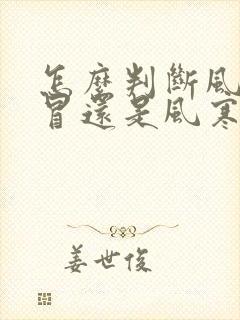 怎麼判斷風
冒還是風寒
姜世俊